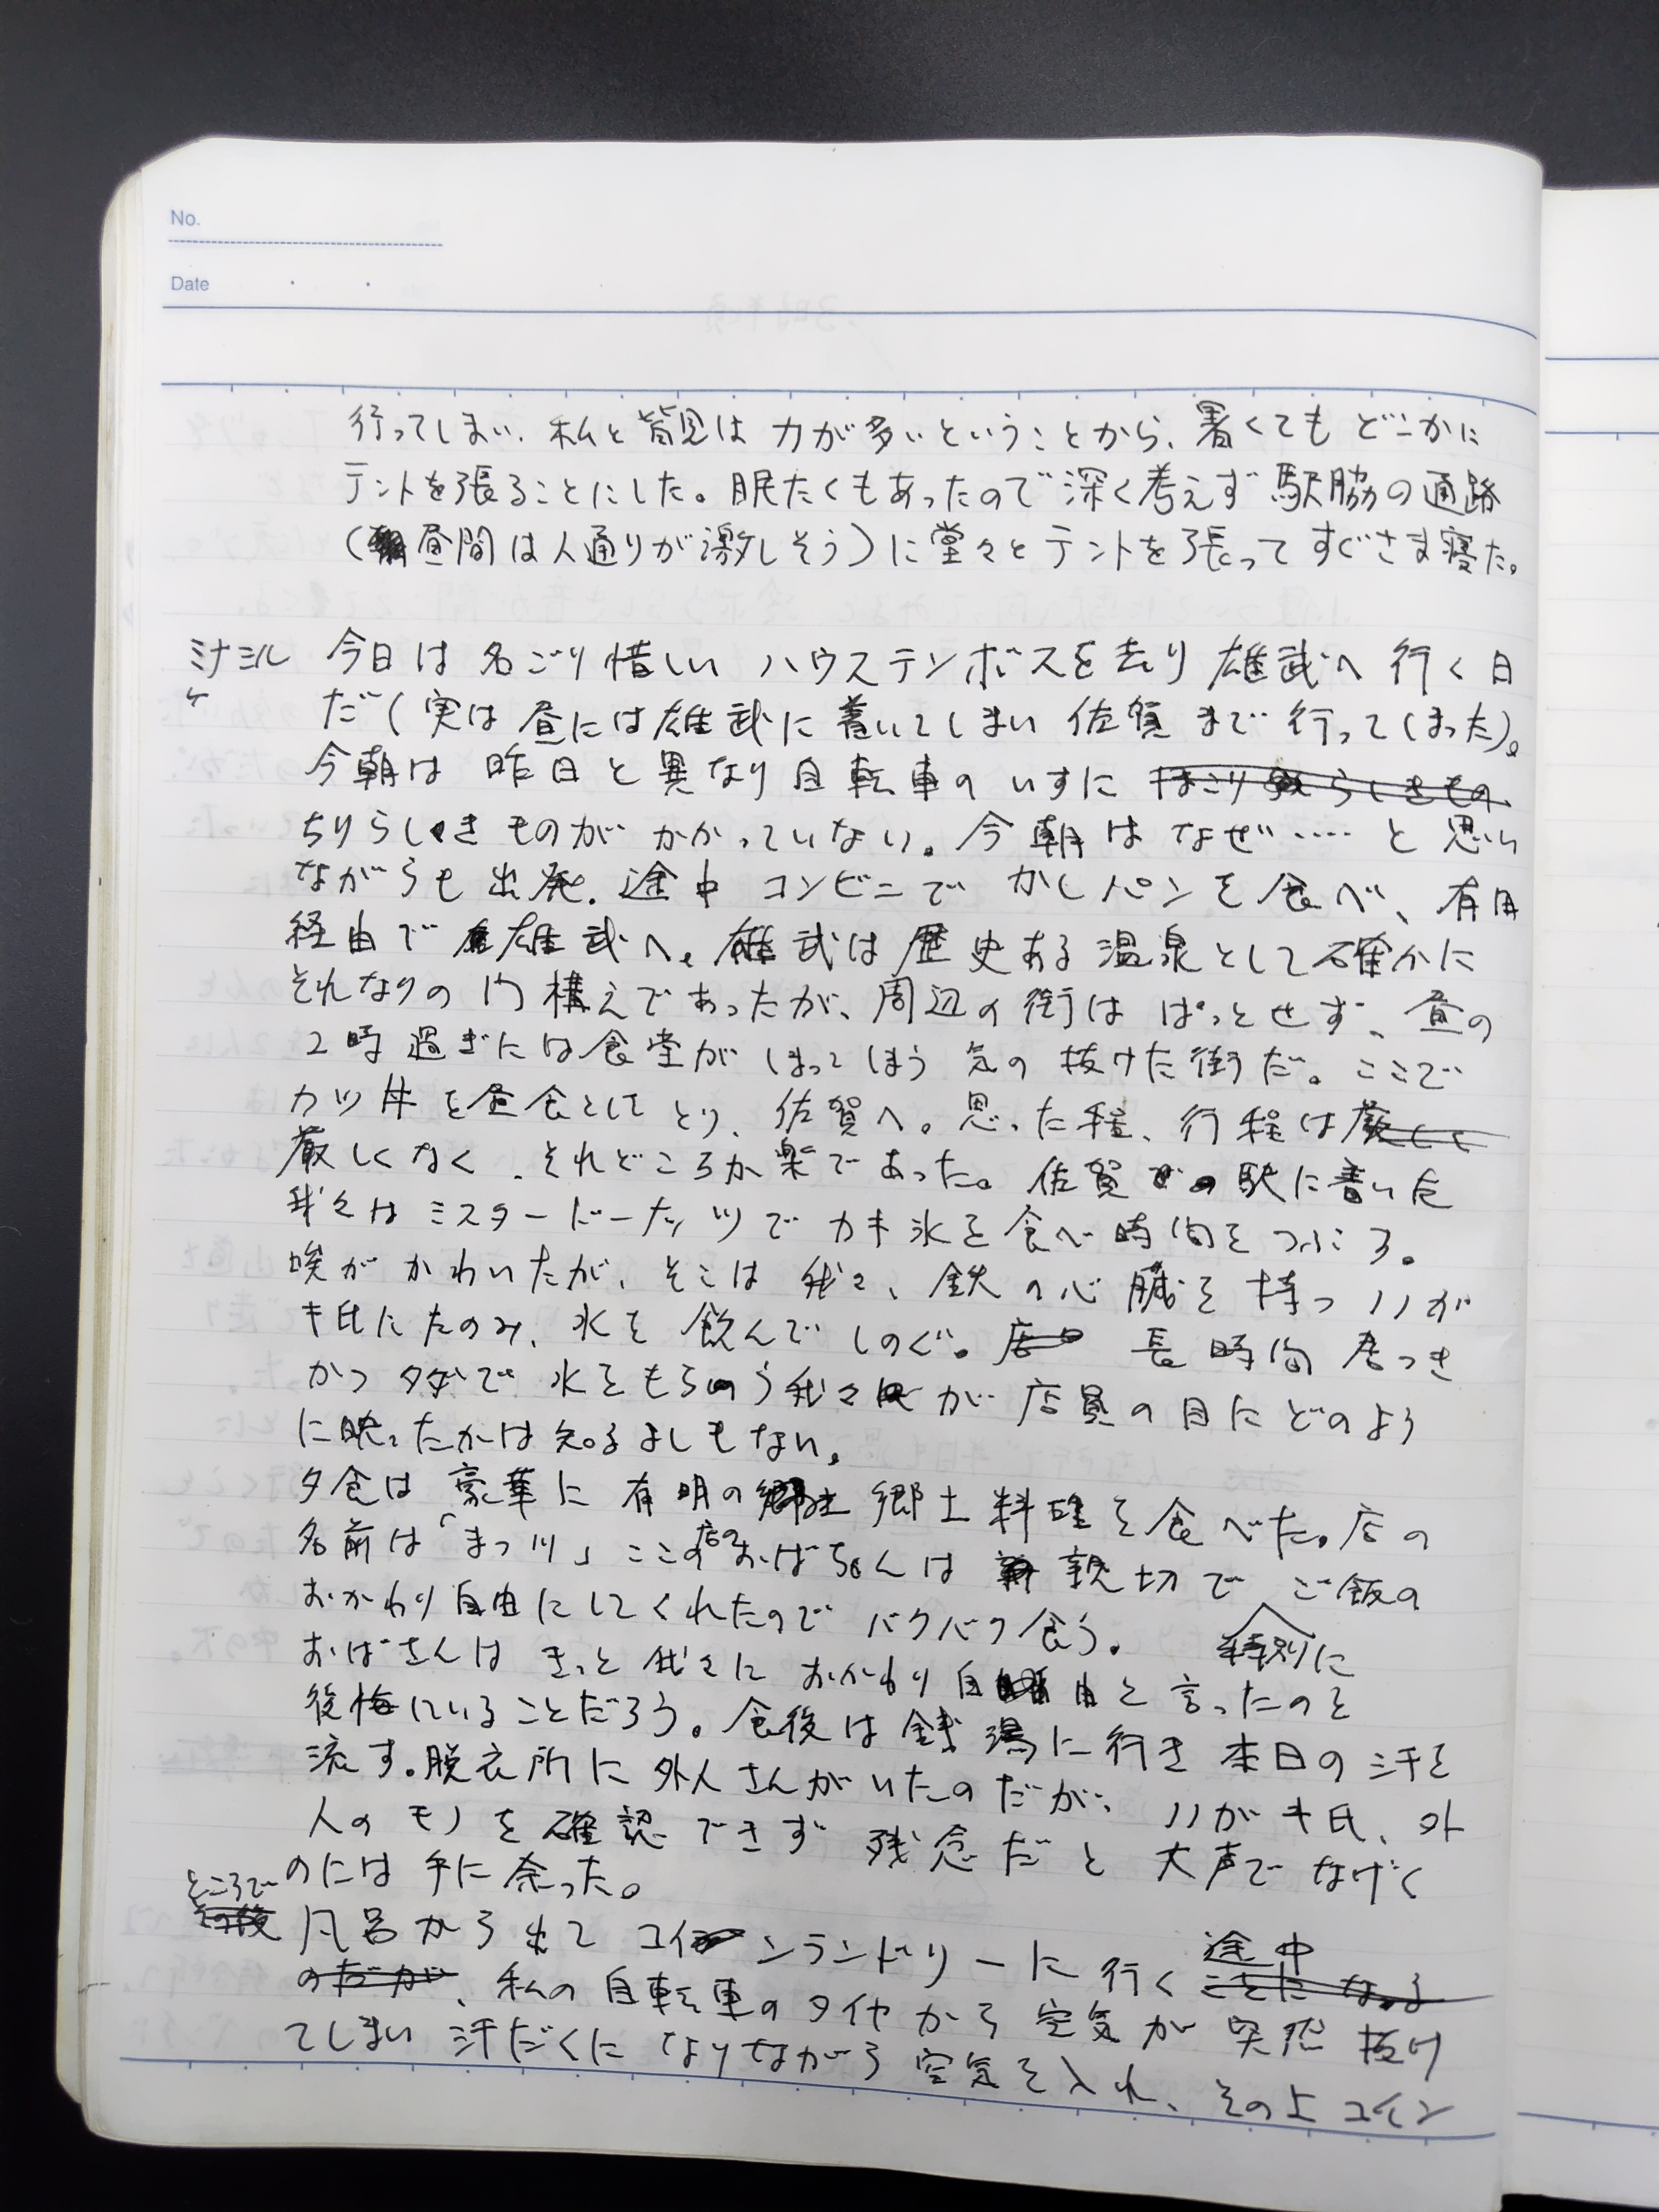 No.
Date
行ってしまい、私と皆見は力が多いということから、暑くてもどこかに
テントを張ることにした。眠たくもあったので深く考えず駅脇の通路
(昼間は人通りが激しそう)に堂々とテントを張ってすぐさま寝た。
ミナミル 今日は名ごり惜しいハウステンボスを去り雄武へ行く日
ケ だ(実は昼には雄武に着いてしまい佐賀まで行ってしまった)。
今朝は昨日と異なり自転車のいすにほこりらしきもの
ちりらしきものがかかっていない。今朝はなぜ‥‥と思い
ながらも出発。途中コンビニでかしパンを食べ、有田
経由で雄武へ。雄武は歴史ある温泉として確かに
それなりの門構えであったが、周辺の街はぱっとせず、昼の
2時過ぎには食堂がしまってしまう気の抜けた街だ。ここで
カツ丼を昼食としてとり、佐賀へ。思った程、行程は厳しく
厳しくなく、それどころか楽であった。佐賀の駅に着いた
我々はミスタードーナッツでカキ氷を食べ時間をつぶころ。
喉がかわいたが、そこは我々、鉄の心臓を持つハガ
キ氏にたのみ、水を飲んでしのぐ。店の 長時間居つき
かつタダで水をもらう我々が店員の目にどのよう
に映ったかは知るよしもない。
夕食は豪華に有明の郷土郷土料理を食べた。店の
名前は「まつ川」ここの店のおばちゃんは親切でご飯の
おかわり自由にしてくれたのでバクバク食う。
おばさんはきっと我々におかわり自由と言ったのを 特別に
後悔にいることだろう。食後は銭湯に行き本日の汗を
流す。脱衣所に外人さんがいたのだが、ハガキ氏、外
人のモノを確認できず残念だと大声でなげく
のには手に余った。
ところで その後 風呂から出てコインランドリーに行く途中 ことになる
のだが、私の自転車のタイヤから空気が突然抜け
てしまい汗だくになりながら空気を入れ、その上コイン